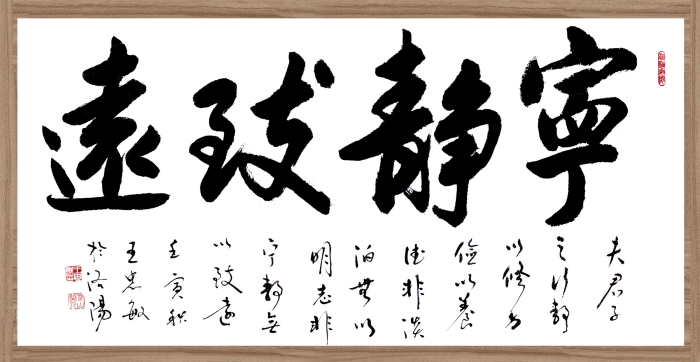 寧靜致遠
夫君子
之行静
以修身
儉以養
德非淡
泊無以
明志非
宁静无
以致遠
壬寅秋
王忠敏
於洛陽